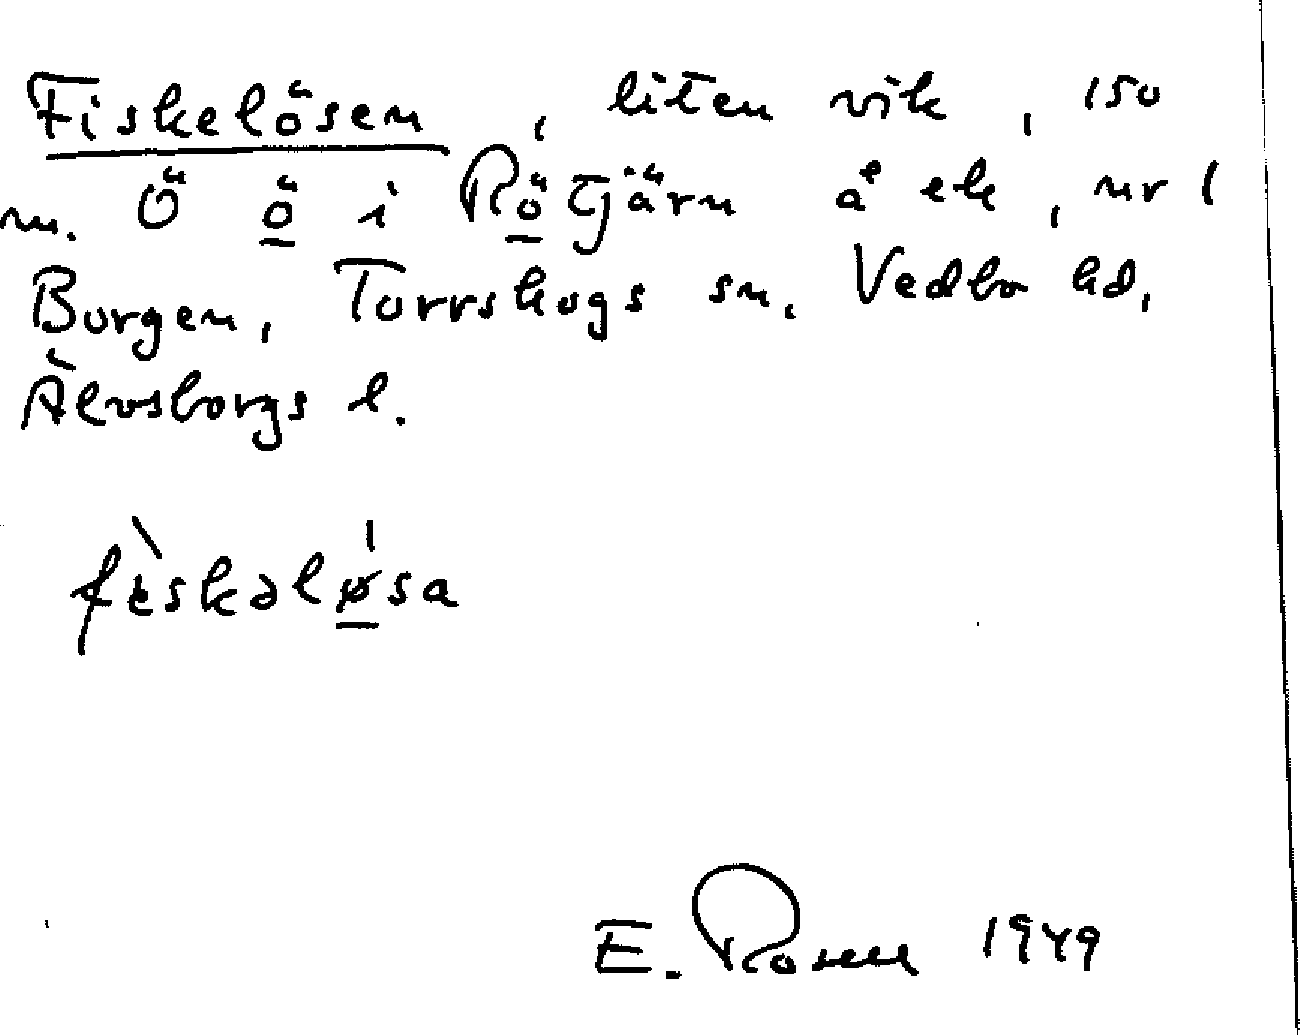 Fiskelösen, liten vik, 150
m. Ö ö i Rötjärn å ek, nr 1
Borgen, Torrskogs sn. Vedbo hd,
Älvsborgs l.
fìskəløsa
E. Rosell 1949